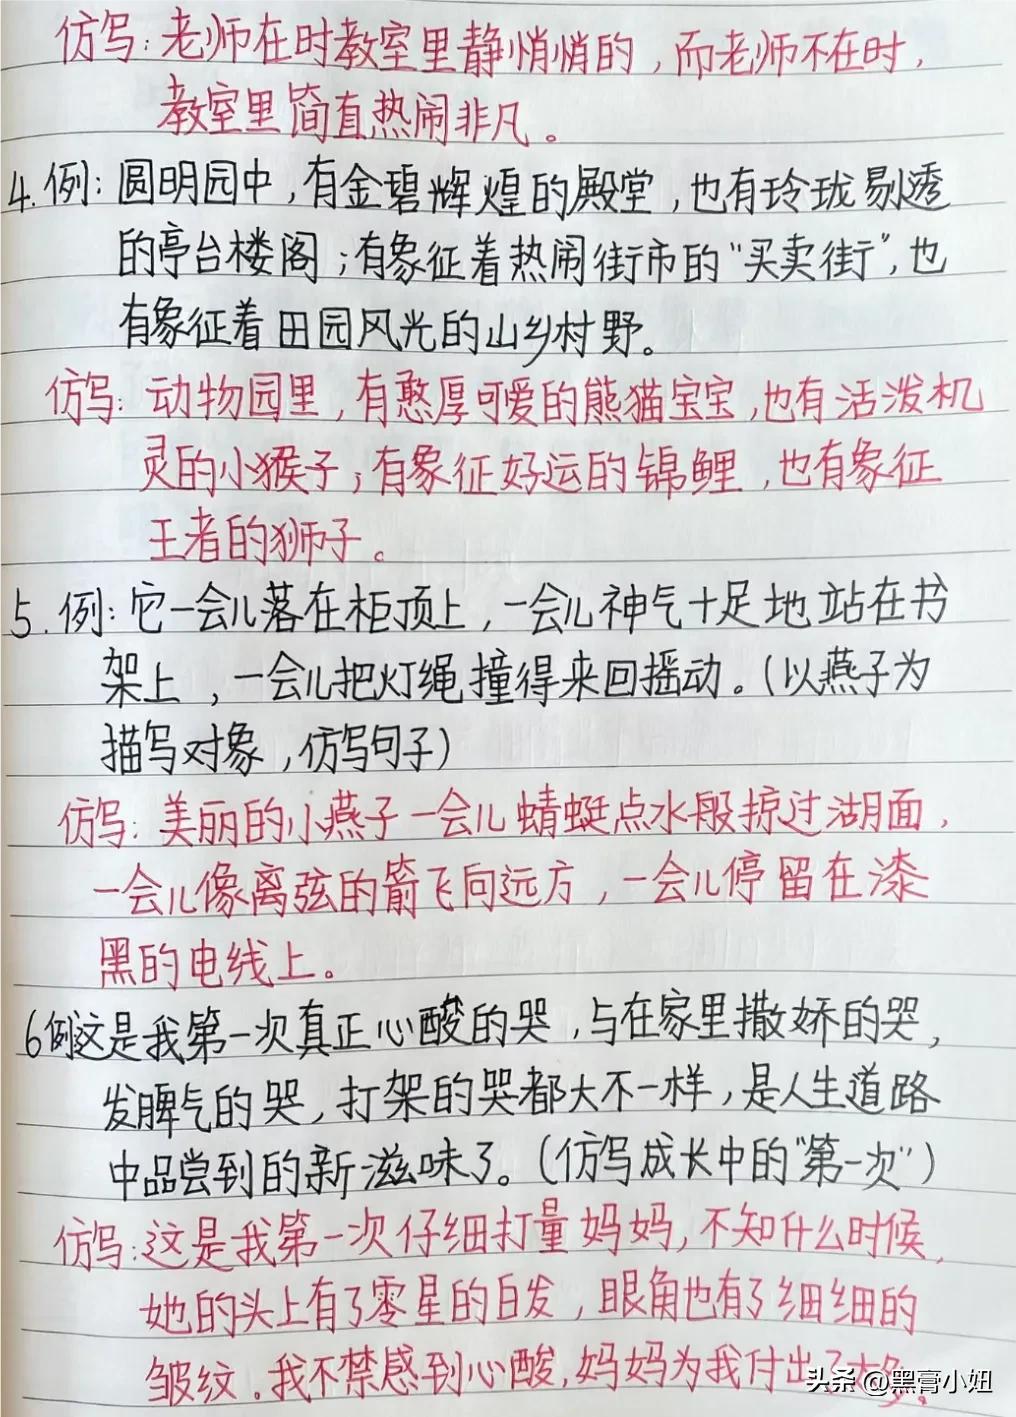 仿写：老师在时教室里静悄悄的，而老师不在时，
教室里简直热闹非凡。
4.例：圆明园中，有金碧辉煌的殿堂，也有玲珑剔透
的亭台楼阁；有象征着热闹街市的“买卖街”，也
有象征着田园风光的山乡村野。
仿写：动物园里，有憨厚可爱的熊猫宝宝，也有活泼机
灵的小猴子；有象征好运的锦鲤，也有象征
王者的狮子。
5.例：它一会儿落在柜顶上，一会儿神气十足地站在书
架上，一会儿把灯绳撞得来回摇动。（以燕子为
描写对象，仿写句子）
仿写：美丽的小燕子一会儿蜻蜓点水般掠过湖面，
一会儿像离弦的箭飞向远方，一会儿停留在漆
黑的电线上。
6例这是我第一次真正心酸的哭，与在家里撒娇的哭，
发脾气的哭，打架的哭都大不一样，是人生道路
中品尝到的新滋味了。（仿写成长中的“第一次”）
仿写：这是我第一次仔细打量妈妈，不知什么时候，
她的头上有了零星的白发，眼角也有了细细的
皱纹。我不禁感到心酸，妈妈为我付出了太多。
头条 @黑膏小妞